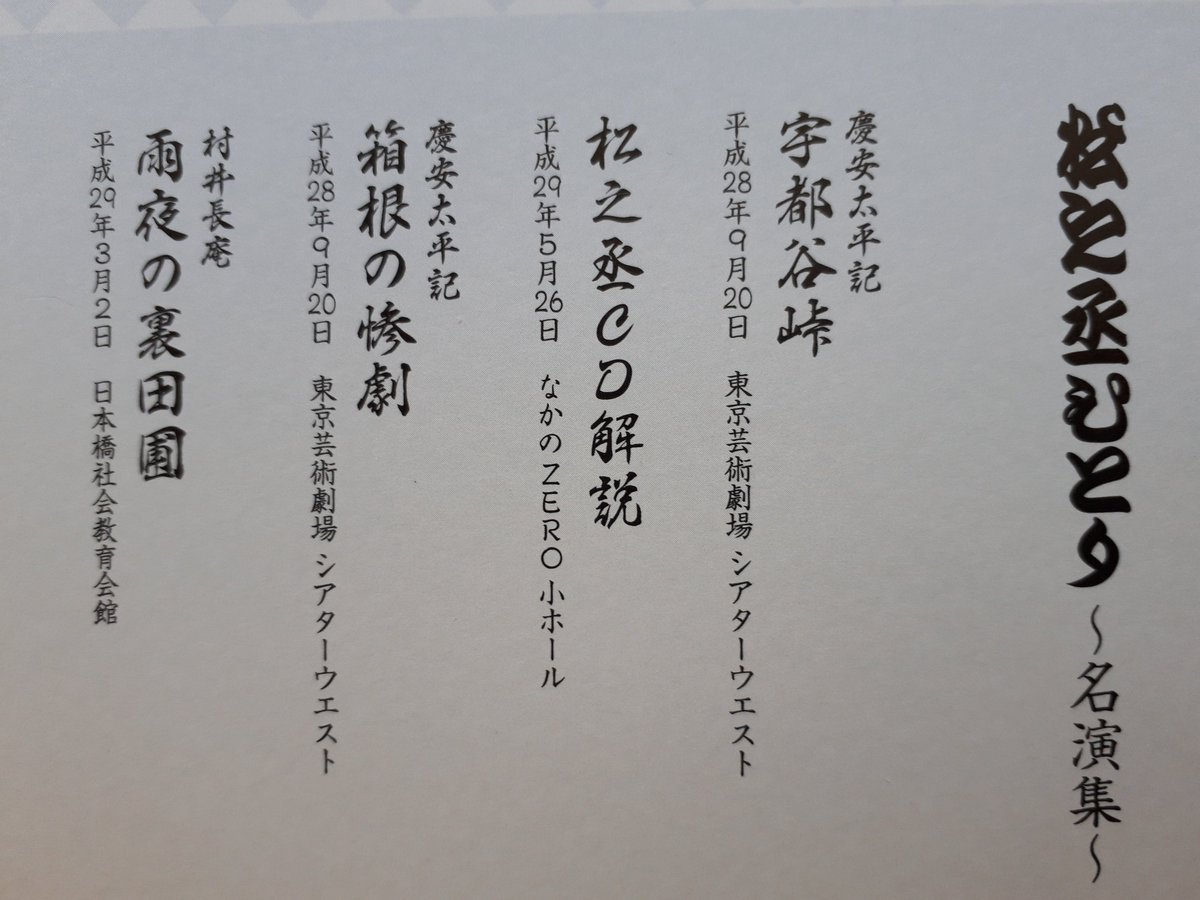 松之丞ひとり～名演集～
慶安太平記
宇都谷峠
平成28年9月20日 東京芸術劇場 シアターウエスト
松之丞CD解説
平成29年5月26日 なかのZERO 小ホール
慶安太平記
箱根の惨劇
平成28年9月20日 東京芸術劇場 シアターウエスト
村井長庵
雨夜の裏田圃
平成29年3月2日 日本橋社会教育会館